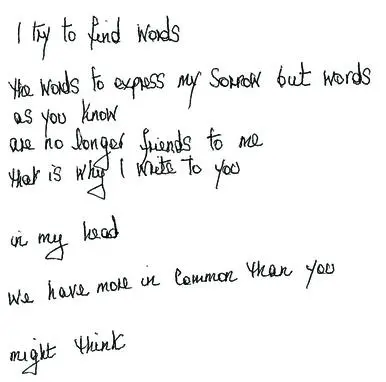 I try to find words
the words to express my sorrow but words
as you know
are no longer friends to me
that is why I write to you
in my head
we have more in common than you
might think